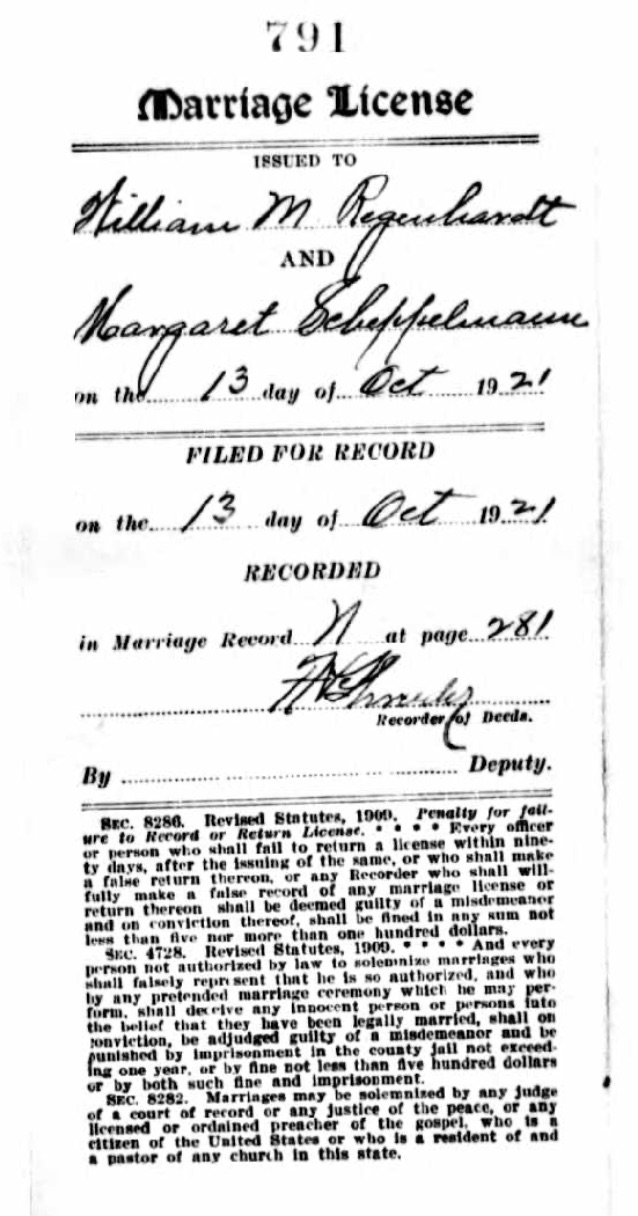 791
Marriage License
ISSUED TO
William M Regenhardt
AND
Margaret Scheppelmann
on the 13 day of Oct 1921
FILED FOR RECORD
on the 13 day of Oct 1921
RECORDED
in Marriage Record N at page 281
Recorder of Deeds.
By Deputy.
SEC. 8286. Revised Statutes, 1909. Penalty for fail-
ure to Record or Return License. • • • • Every officer
or person who shall fail to return a license within nine-
ty days, after the issuing of the same, or who shall make
a false return thereon, or any Recorder who shall will-
fully make a false record of any marriage license or
return thereon shall be deemed guilty of a misdemeanor
and on conviction thereof, shall be fined in any sum not
less than five nor more than one hundred dollars.
SEC. 4728. Revised Statutes, 1909. • • • • And every
person not authorized by law to solemnize marriages who
shall falsely represent that he is so authorized, and who
by any pretended marriage ceremony which he may per-
form, shall deceive any innocent person or persons into
the belief that they have been legally married, shall on
conviction, be adjudged guilty of a misdemeanor and be
punished by imprisonment in the county jail not exceed-
ing one year, or by fine not less than five hundred dollars
or by both such fine and imprisonment.
SEC. 8282. Marriages may be solemnized by any judge
of a court of record or any justice of the peace, or any
licensed or ordained preacher of the gospel, who is a
citizen of the United States or who is a resident of and
a pastor of any church in this state.